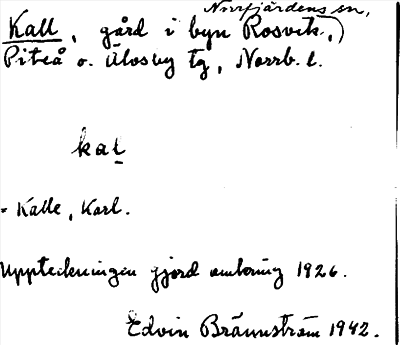 Norrfjärdens sn,
Kall, gård i byn Rosvik,)
Piteå o. Älvsby tg, Norrb. l.
kal
= Kalle, Karl.
Uppteckningen gjord omkring 1926.
Edvin Brännström 1942.